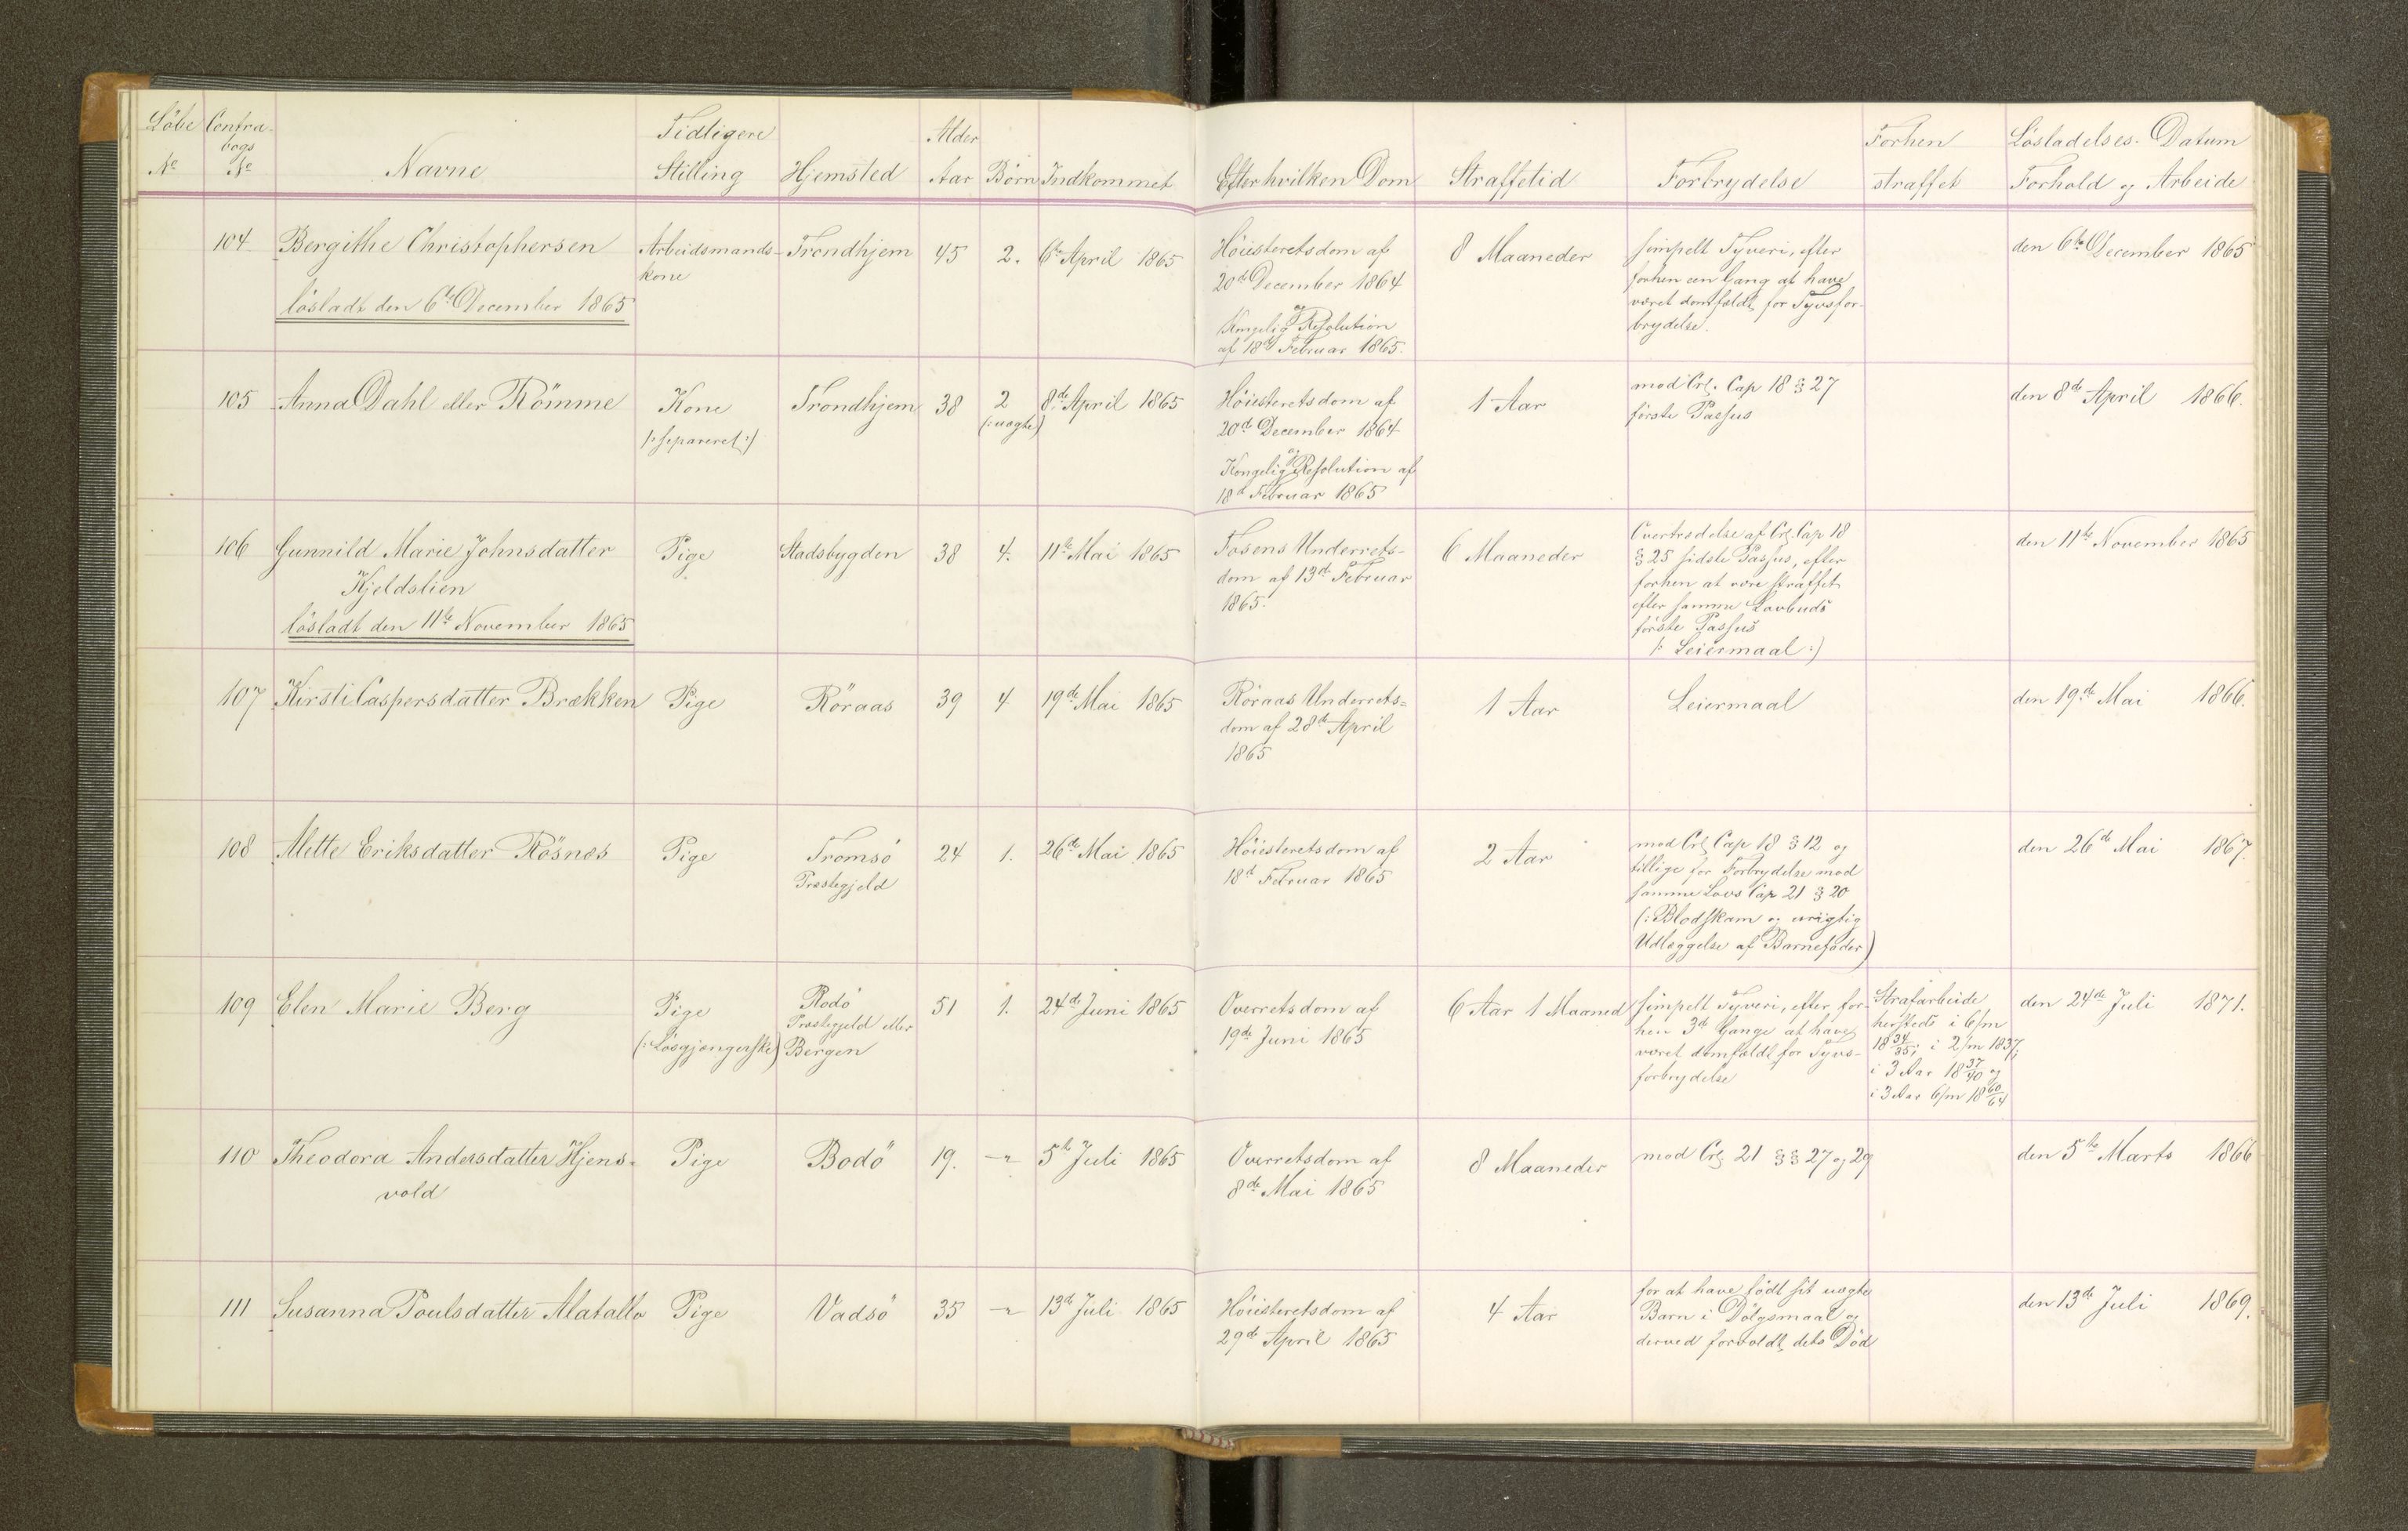 Löbe Contra- Tidligere Alder Forhen Løsladelses-Datum
bogs
No No Navne Stilling Hjemsted Aar Børn Indkommet Efter hvilken Dom Straffetid Forbrydelse straffet Forhold og Arbeide
104 Bergithe Christophersen Arbeidsmands- Trondhjem 45 2. 6te April 1865 Høiesteretsdom af 8 Maaneder simpelt Tyveri, efter den 6te December 1865
kone 20de December 1864 forhen een Gang at have
lösladt den 6te December 1865 og været domfældt for Tyvsfor-
Kongelig Resolution brydelse.
af 18de Februar 1865.
105 Anna Dahl eller Römme Kone Trondhjem 38 2 8de April 1865 Høiesteretsdom af 1 Aar mod Crl. Cap 18 § 27 den 8de April 1866.
/: separeret :/ (: uægte) 20de December 1864 første Passus
og
Kongelig Resolution af
18de Februar 1865
106 Gunnild Marie Johnsdatter Pige Stadsbygden 38 4. 11te Mai 1865 Fosens Underrets- 6 Maaneder Overtrædelse af Crl. Cap 18 den 11te November 1865
Kjeldslien dom af 13de Februar § 25 sidste Passus, efter
lösladt den 11te November 1865 1865. forhen at være straffet
efter samme Lovbuds
første Passus
/: Leiermaal :/
107 Kirsti Caspersdatter Brækken Pige Röraas 39 4 19de Mai 1865 Röraas Underrets- 1 Aar Leiermaal den 19de Mai 1866.
dom af 28de April
1865
108 Mette Eriksdatter Rösnæs Pige Tromsö 24 1. 26de Mai 1865 Høiesteretsdom af 2 Aar mod Crl Cap 18 § 12 og den 26de Mai 1867.
Præstegjeld 18de Februar 1865 tillige for Forbrydelse mod
samme Lovs Cap 21 § 20
(: Blodskam og urigtig
Udlæggelse af Barnefader)
109 Elen Marie Berg Pige Rodö 51 1. 24de Juni 1865 Overretsdom af 6 Aar 1 Maaned simpelt Tyveri, efter for- Strafarbeide den 24de Juli 1871.
(: Løsgjængerske) Præstegjeld eller 19de Juni 1865 hen 3de Gange at have hersteds i 6/m
Bergen været domfældt for Tyvs- 18 34/35; i 2/m 1837;
forbrydelse i 3 Aar 18 37/40 og
i 3 Aar 6/m 18 60/64
110 Theodora Andersdatter Hjens- Pige Bodö 19. -"- 5te Juli 1865 Overretsdom af 8 Maaneder mod Crl 21 §§ 27 og 29 den 5te Marts 1866
vold 8de Mai 1865
111 Susanna Poulsdatter Alatallo Pige Vadsö 35 -"- 13de Juli 1865 Høiesteretsdom af 4 Aar for at have født sit uægte den 13de Juli 1869.
29de April 1865 Barn i Dølgsmaal og
derved forvoldt dets Död